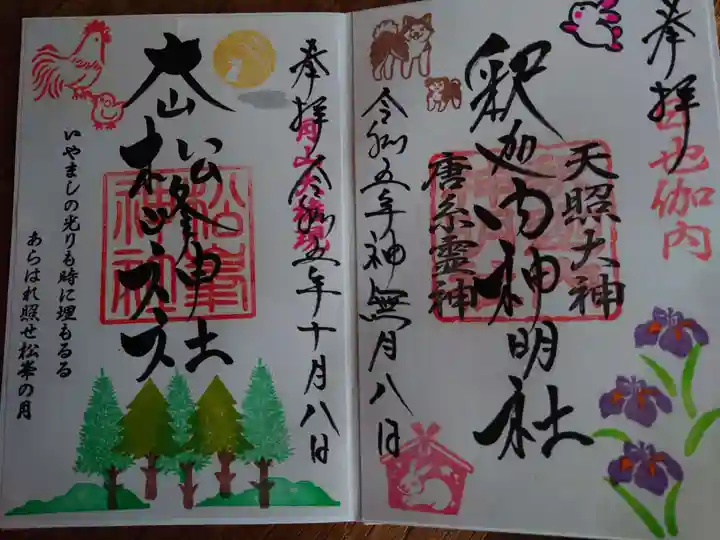 奉拝
釈迦内神明社
天照大神
唐糸霊神
令和五年神無月八日
奉拝
令和五年十月八日
大山
松峰神社
松峯神社
いやましの光りも時に埋もるる
あらはれ照せ松峯の月